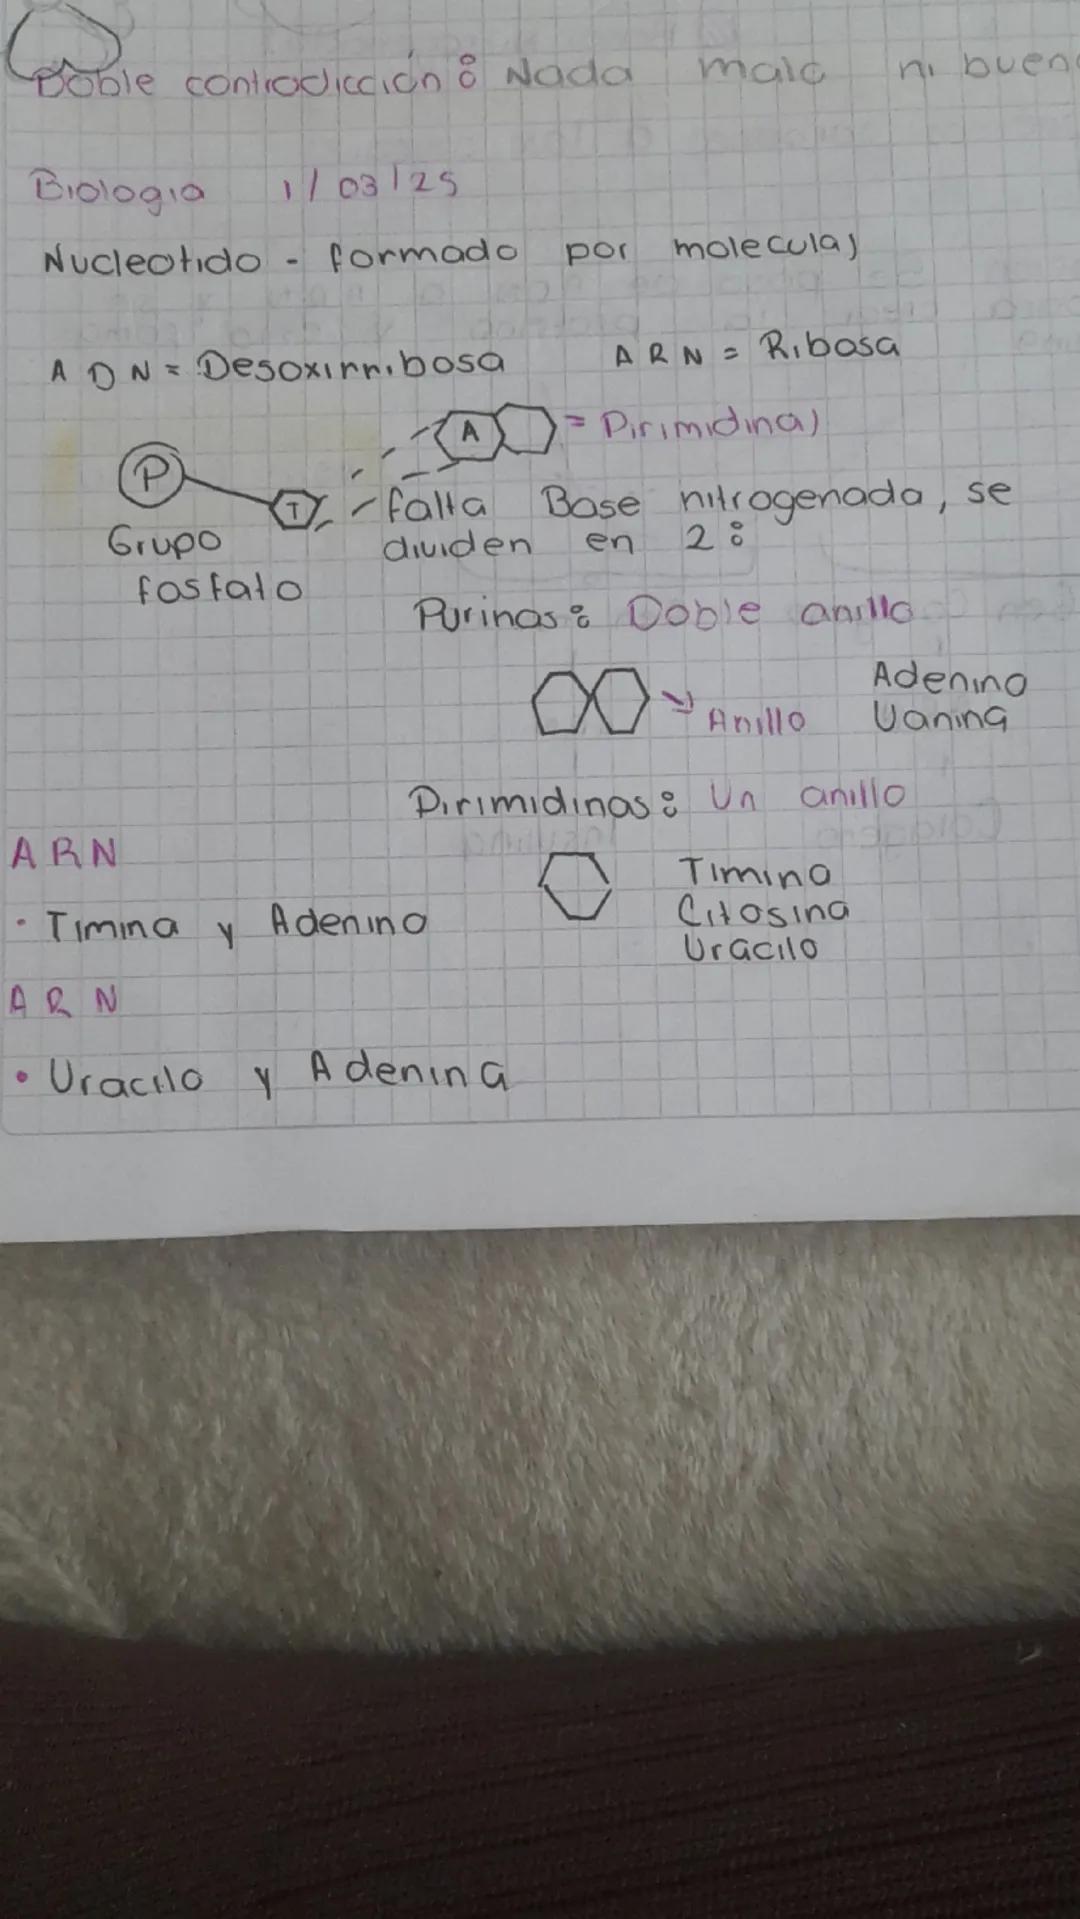 Doble contradicción: Nada malo ni bueno
Biologia 1/03/25
Nucleotido - formado por moleculas
ADN = Desoxirribosa ARN = Ribosa
A = Pirimidinas
P T - falta Base nitrogenada, se
Grupo dividen en 2:
fosfato
Purinas: Doble anillo
Adenina
Anillo Uanina
Pirimidinas: Un anillo
ARN
Timina
· Timina y Adenina Citosina
Uracilo
ARN
· Uracilo y Adenina